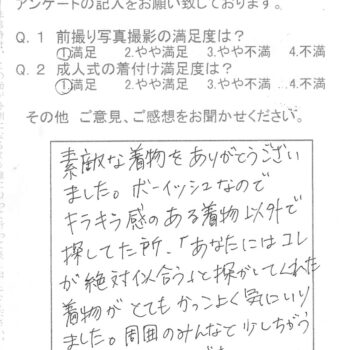 アンケートの記入をお願い致しております。
Q.1 前撮り写真撮影の満足度は?
①満足 2.やや満足 3.やや不満 4.不満
Q.2 成人式の着付け満足度は?
①満足 2.やや満足 3.やや不満 4.不満
その他 ご意見、ご感想をお聞かせください。
素敵な着物をありがとうござい
ました。ボーイッシュなので
キラキラ感のある着物以外で
探してた所、「あなたにはコレ
が絶対似合う」と探がしてくれた
着物がとてもかっこよく気にいり
ました。周囲のみんなと少しちがう